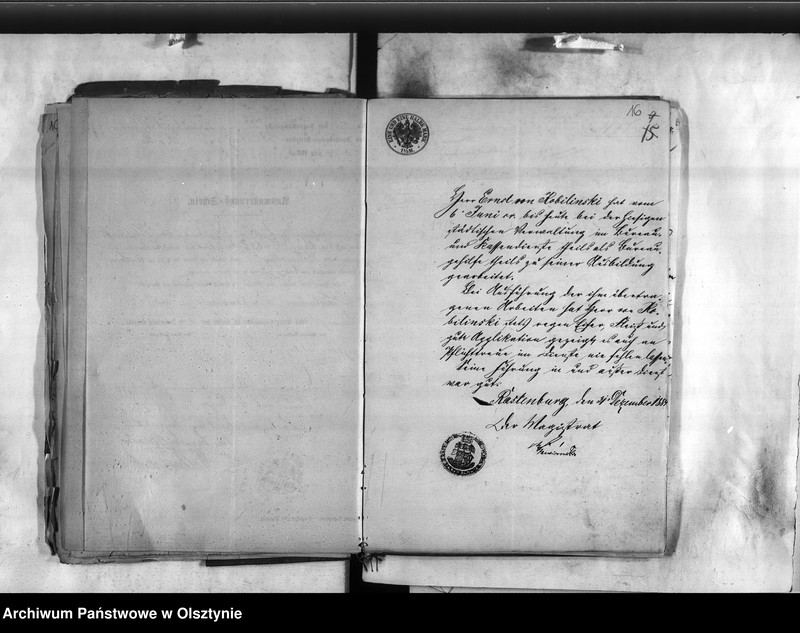 16
9
15
EINE UND EINE HALBE MARK
Herr Ernst von Kobilinski hat vom
6t Juni cr. bis heute bei der hiesigen
städtischen Verwaltung im Bureau-
und Kassendienste theils als Bureau-
gehilfe theils zu seiner Ausbildung
gearbeitet.
Bei Ausführung der ihm übertra-
genen Arbeiten hat Herr von Ko-
bilinski stets regen Eifer, Fleiß und
gute Applikation gezeigt, es auch an
Pflichttreue im Dienste nie fehlen lassen.
Seine Führung in und außer Dienst
war gut.
Rastenburg, den 21 Dezember
Der Magistrat
Archiwum Państwowe w Olsztynie